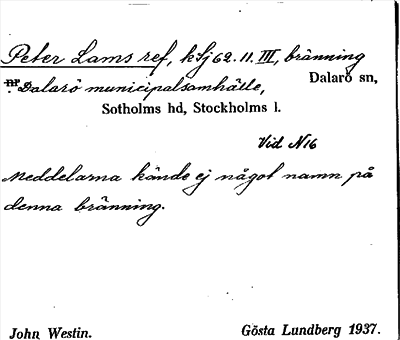 Peter Lams ref, k Sj 62. 11. III, bränning
nr. Dalarö municipalsamhälle, Dalarö sn,
Sotholms hd, Stockholms l.
Vid N16
Meddelarna kände ej något namn på
denna bränning.
John Westin. Gösta Lundberg 1937.